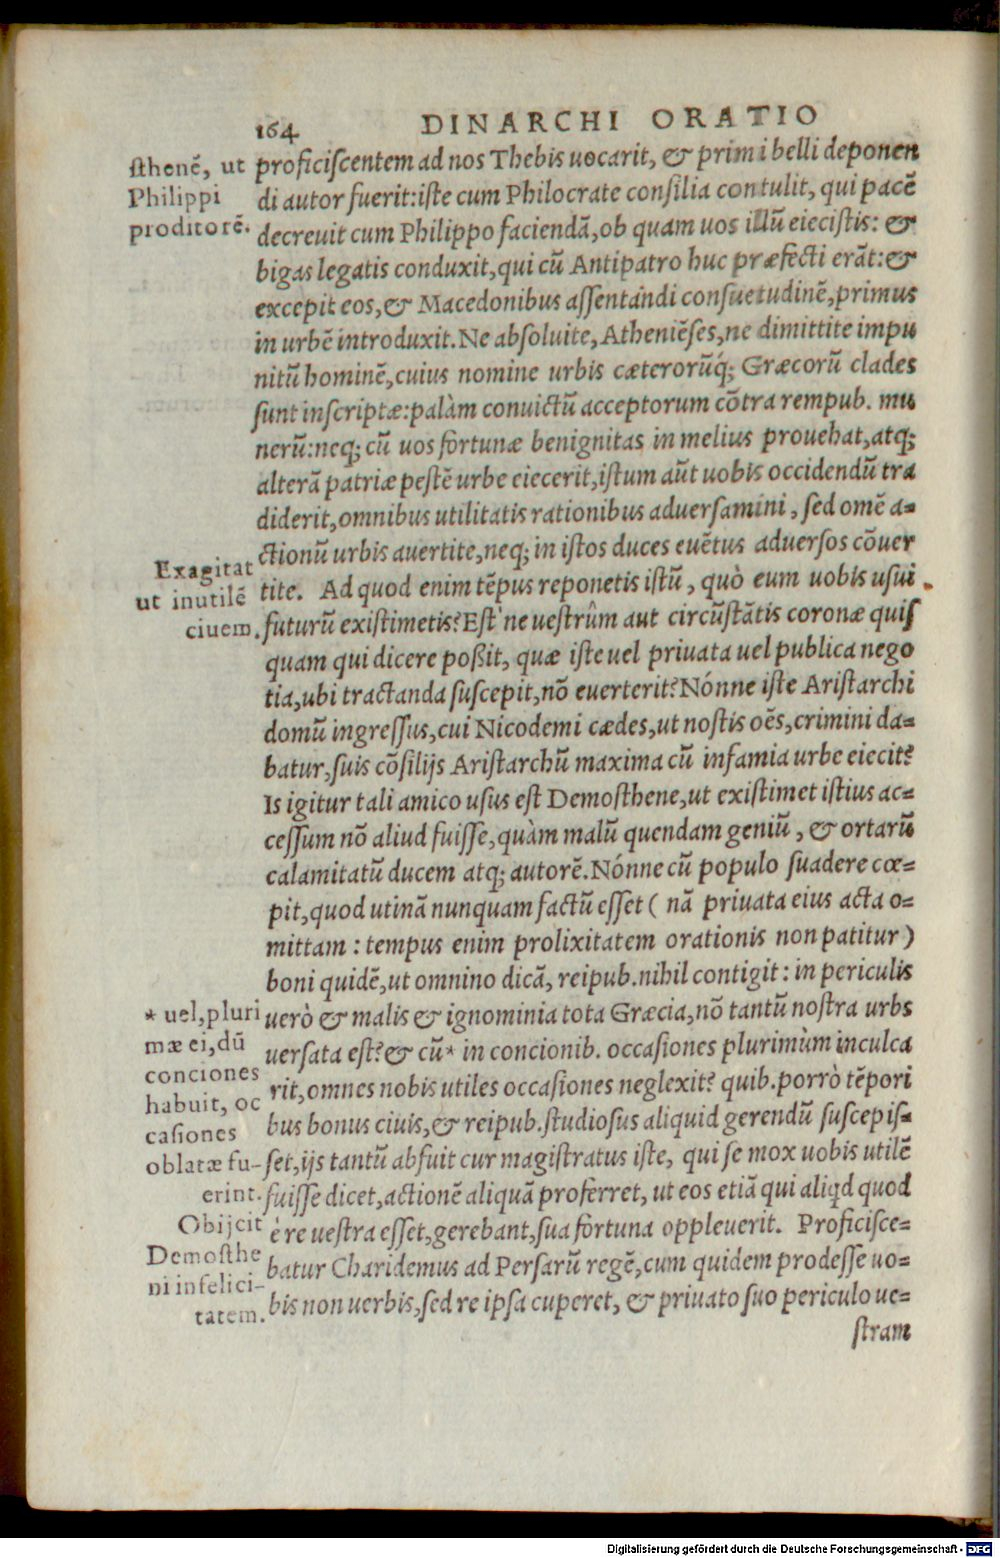 164 DINARCHI ORATIO
sthenē, ut
Philippi
proditorē.
proficiscentem ad nos Thebis uocarit, & primi belli deponen
di autor fuerit: iste cum Philocrate consilia contulit, qui pacē
decreuit cum Philippo faciendā, ob quam uos illū eiecistis: &
bigas legatis conduxit, qui cū Antipatro huc præfecti erāt: &
excepit eos, & Macedonibus assentandi consuetudinē, primus
in urbē introduxit. Ne absoluite, Atheniēses, ne dimittite impu
nitū hominē, cuius nomine urbis cæterorūq́; Græcorū clades
sunt inscriptæ: palàm conuictū acceptorum cōtra rempub. mu
nerū: neq; cū uos fortunæ benignitas in melius prouehat, atq;
alterā patriæ pestē urbe eiecerit, istum aūt uobis occidendū tra
diderit, omnibus utilitatis rationibus aduersamini, sed omē a-
ctionū urbis auertite, neq; in istos duces euētus aduersos cōuer
Exagitat
ut inutilē
ciuem.
tite. Ad quod enim tēpus reponetis istū, quò eum uobis usui
futurū existimetis? Est ne uestrûm aut circūstātis coronæ quis
quam qui dicere poßit, quæ iste uel priuata uel publica nego
tia, ubi tractanda suscepit, nō euerterit? Nónne iste Aristarchi
domū ingressus, cui Nicodemi cædes, ut nostis oēs, crimini da-
batur, suis cōsilijs Aristarchū maxima cū infamia urbe eiecit?
Is igitur tali amico usus est Demosthene, ut existimet istius ac-
cessum nō aliud fuisse, quàm malū quendam geniū, & ortarū
calamitatū ducem atq; autorē. Nónne cū populo suadere cœ-
pit, quod utinā nunquam factū esset (nā priuata eius acta o-
mittam: tempus enim prolixitatem orationis non patitur)
boni quidē, ut omnino dicā, reipub. nihil contigit: in periculis
uerò & malis & ignominia tota Græcia, nō tantū nostra urbs
uersata est? & cū* in concionib. occasiones plurimùm inculca
rit, omnes nobis utiles occasiones neglexit? quib. porrò tēpori
bus bonus ciuis, & reipub. studiosus aliquid gerendū suscepis-
set, ijs tantū abfuit cur magistratus iste, qui se mox uobis utilē
fuisse dicet, actionē aliquā proferret, ut eos etiā qui aliqd quod
* uel, pluri
mæ ei, dū
conciones
habuit, oc
casiones
oblatæ fu-
erint.
Obijcit
Demosthe
ni infelici-
tatem.
è re uestra esset, gerebant, sua fortuna oppleuerit. Proficisce-
batur Charidemus ad Persarū regē, cum quidem prodesse uo-
bis non uerbis, sed re ipsa cuperet, & priuato suo periculo ue-
stram
Digitalisierung gefördert durch die Deutsche Forschungsgemeinschaft - DFG